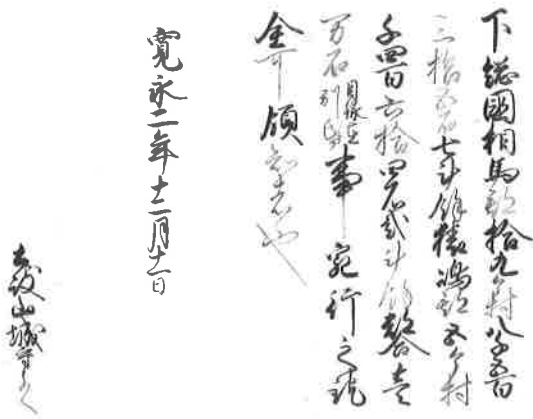 下総國相馬郡拾九ヶ村八千五百
三拾五石七斗餘猿嶋郡五ヶ村
千四百六拾四石弐斗餘都合壱
万石目録在別紙事宛行之訖
全可領知者也
寛永二年十二月十一日
土岐山城守とのへ